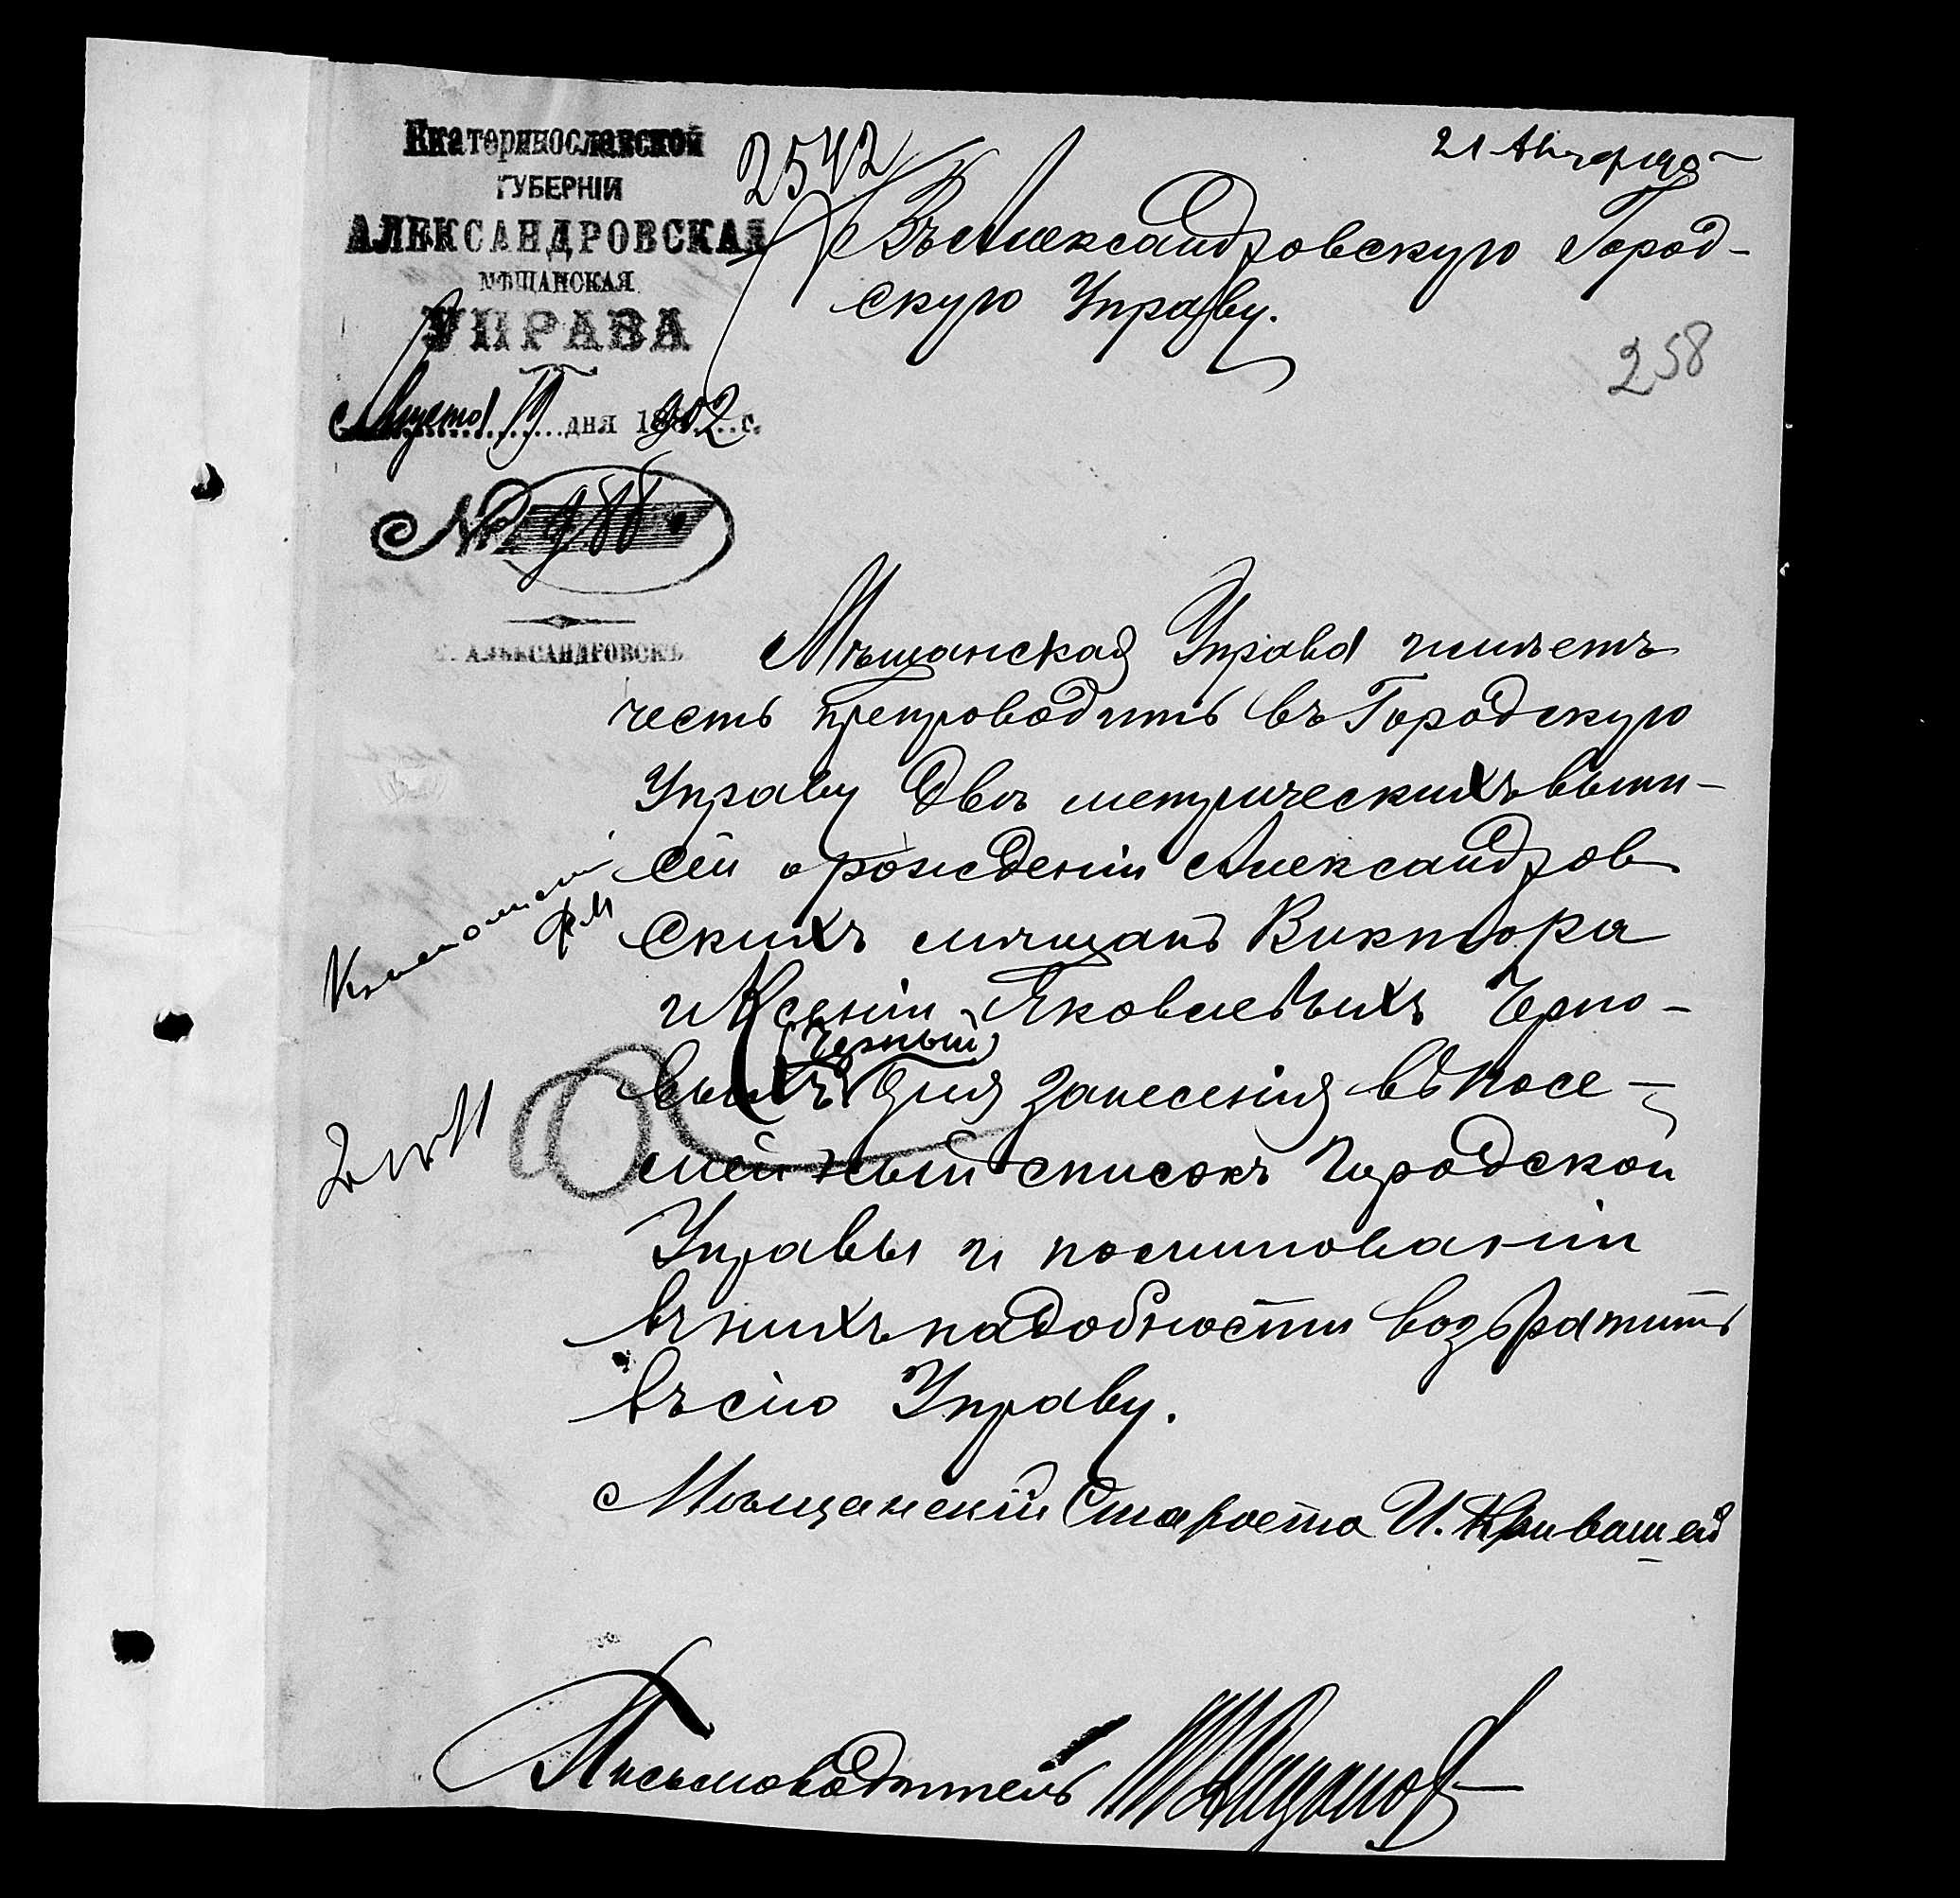 Екатеринославской
ГУБЕРНІИ
АЛЕКСАНДРОВСКАЯ
МѢЩАНСКАЯ
УПРАВА
Августа 19 дня 1902 г.
№ 988
Г. АЛЕКСАНДРОВСКЪ
2542
21 Августа
Въ Александровскую Город-
скую Управу.
258
Мѣщанская Управа имѣетъ
честь препроводить въ Городскую
Управу двѣ метрическихъ выпи-
сей о рожденіи Александров
скихъ мѣщанъ Виктора
и Ксеніи Яковлевыхъ Черно-
(Черный)
выхъ для занесенія въ посе-
мейный списокъ Городской
Управы и поминованіи
въ нихъ надобности возвратить
въ сію Управу.
Мѣщанскій Староста И. Кривошей
Письмоводитель